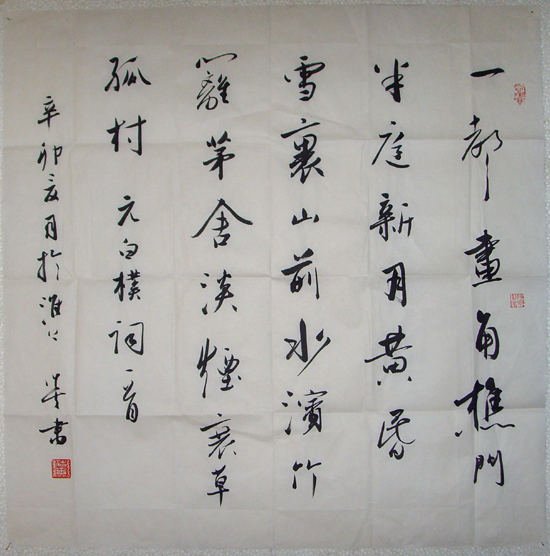 一聲畫角樵門
半庭新月黄昏
雪裏山前水濱竹
籬茅舍淡煙衰草
孤村 元白樸詞一首
辛卯夏月於淮 書